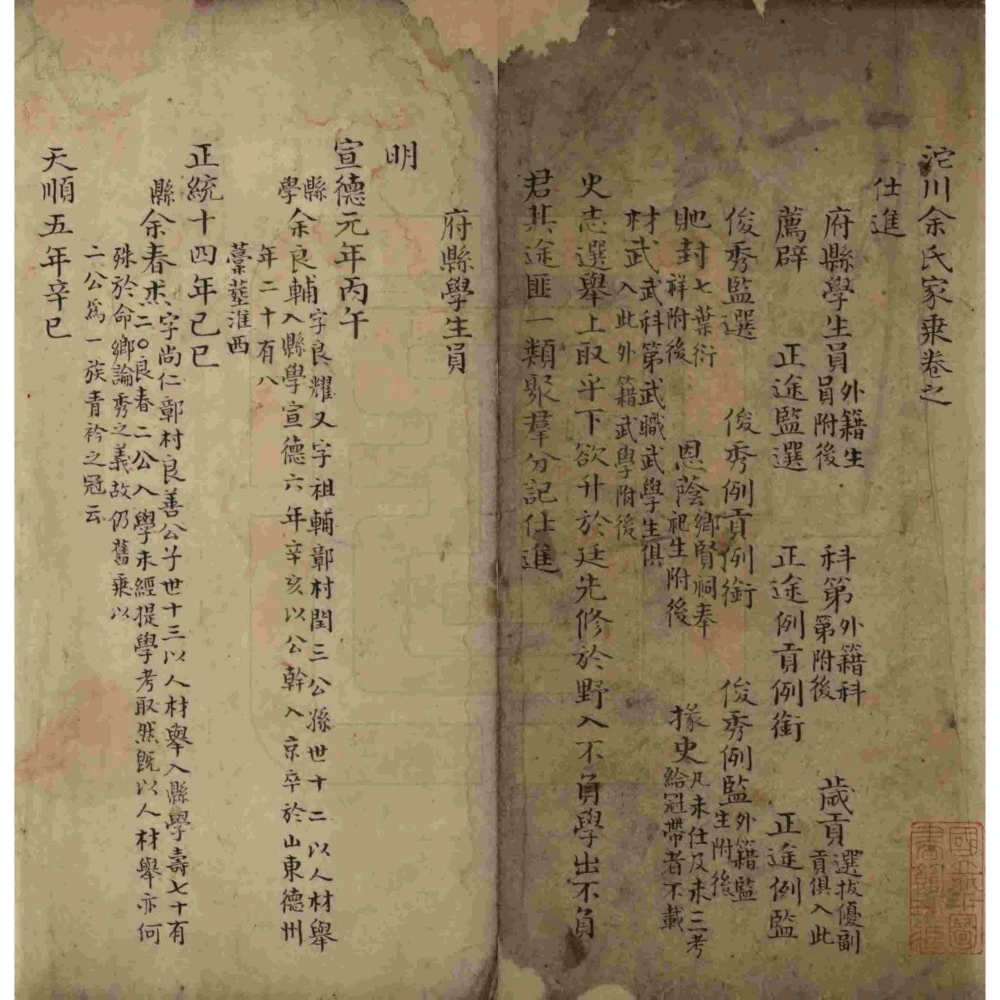 沱川余氏家乘卷之
仕進
府縣學生員 外籍生員附後 科第 外籍科第附後 歲貢 選拔優副貢俱入此
薦辟 正途監選 正途例貢例銜 正途例監
俊秀監選 俊秀例貢例銜 俊秀例監 外籍監生附後
貤封 七葉衍祥附後 恩蔭 鄉賢祠奉祀生附後 掾史 凡未仕及未三考給冠帶者不載
材武 武科第武職武學生俱入此外籍武學附後
史志選舉上取乎下欲升於廷先修於野入不負學出不負
君其途匪一類聚羣分記仕進
府縣學生員
明
宣德元年丙午
縣學余良輔 字良耀又字祖輔鄣村閏三公孫世十二以人材舉
入縣學宣德六年辛亥以公幹入京卒於山東德州
年二十有八
藁塟淮西
正統十四年己巳
縣余春杰 字尚仁鄣村良善公子世十三以人材舉入縣學壽七十有
二○良春二公入學未經提學考取然既以人材舉亦何
殊於命鄉論秀之義故仍舊乘以
二公爲一族青衿之冠云
天順五年辛巳